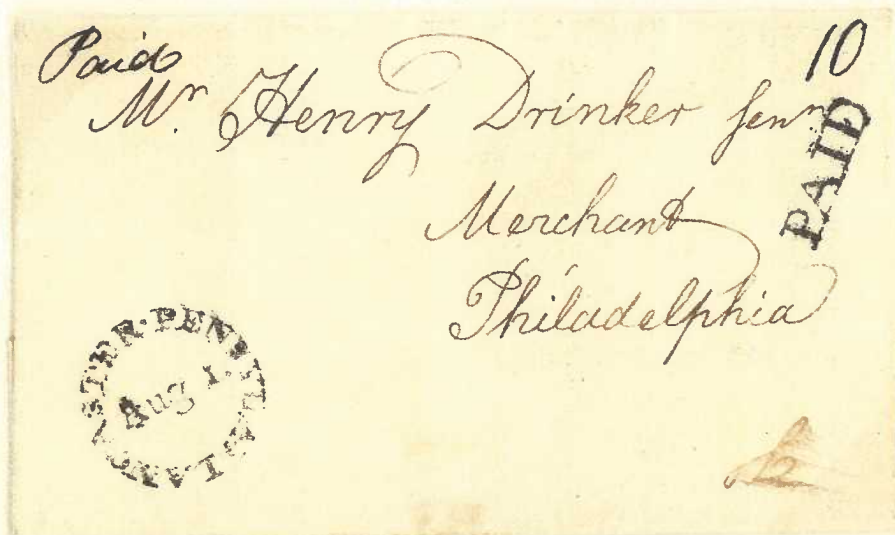 Paid
10
Mr. Henry Drinker Senr
PAID
Merchant
Philadelphia
LANCASTER·PENNSYLVA
Aug 1.